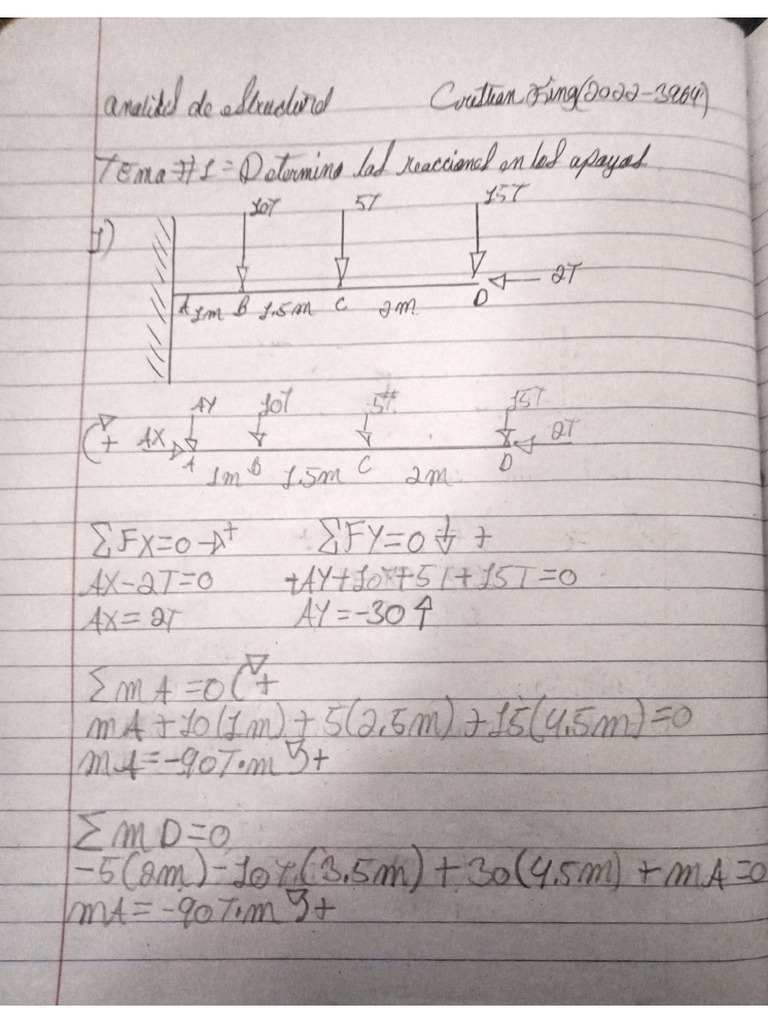 analisis de estructura Cristian King(2022-3964)
Tema #1 = Determine las reacciones en los apoyos
1) 10T 5T 15T
2T
A 1m B 1.5m C 2m D
AY 10T 5T 15T
+ AX 2T
A 1m B 1.5m C 2m D
ΣFX=0 → + ΣFY=0 ↓ +
AX-2T=0 +AY+10T+5T+15T=0
AX=2T AY=-30 ↑
ΣmA=0 +
mA+10(1m)+5(2.5m)+15(4.5m)=0
mA=-90T.m +
ΣmD=0
-5(2m)-10T(3.5m)+30(4.5m)+mA=0
mA=-90T.m +